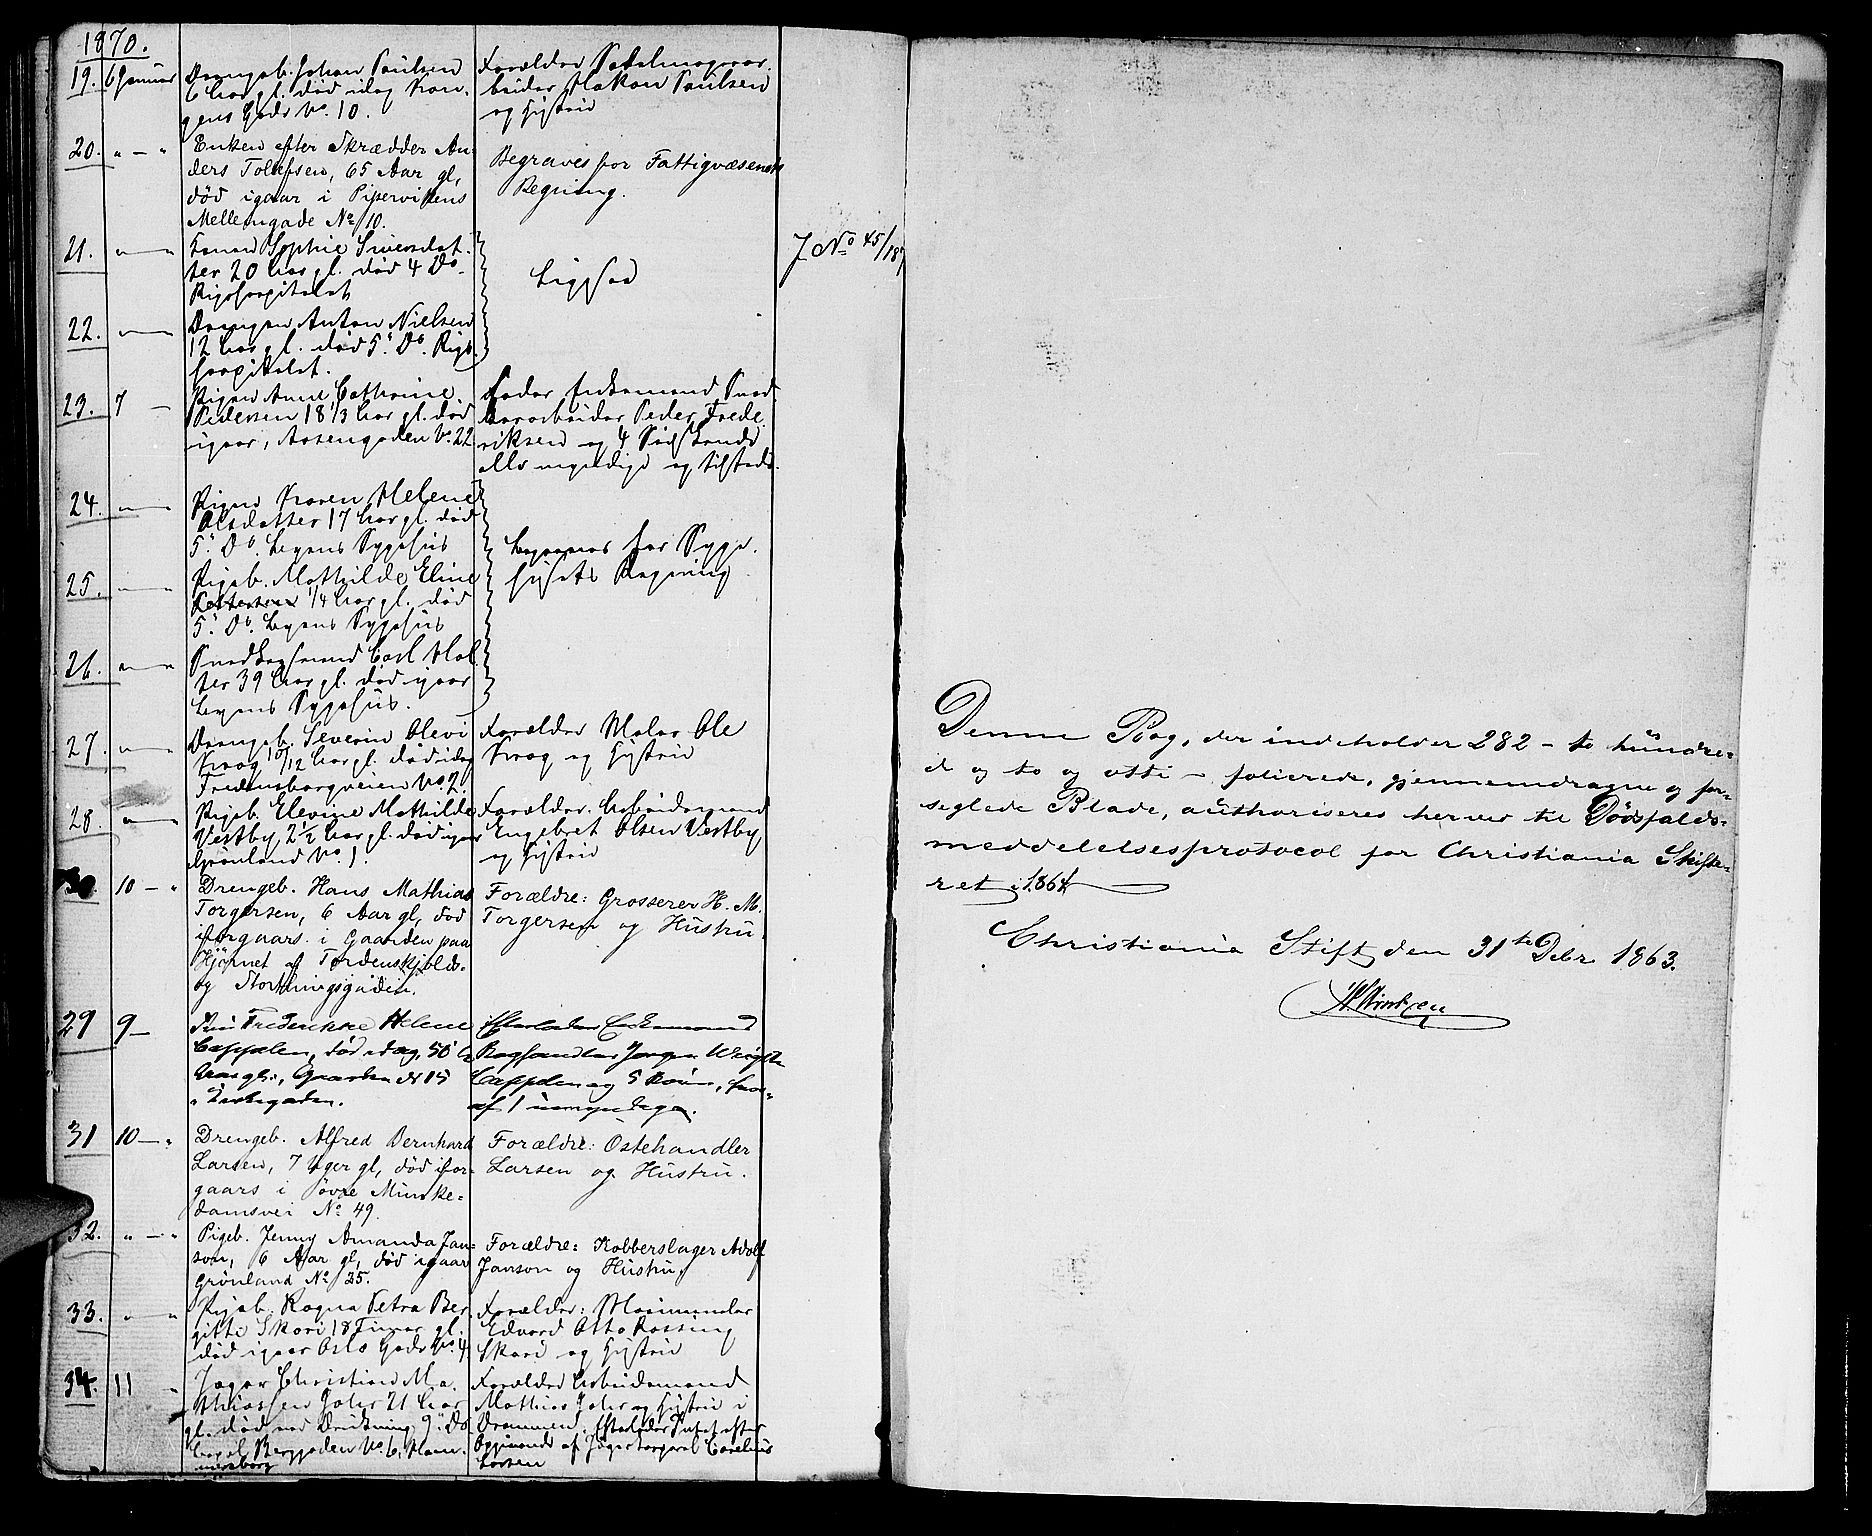 1870.
19. 6 Januar Drengeb. Johan Paulsen
6 Aar gl. død idag Kon-
gens Gade No. 10.
Forældre Sadelmagerar-
beider Hakon Paulsen
og Hustru
20. " — " Enken efter Skrædder An-
ders Tollefsen, 65 Aar gl,
død igaar i Pipervikens
Mellemgade No 10.
Begraves for Fattigvæsenets
Regning.
21. " — " Sophie Siversdat-
ter 20 Aar gl. død 4 Ds.
Rigshospitalet
J No 45/187
22. " — " Drengen Anton Nielsen
12 Aar gl. død 5. Ds. Rigs-
hospitalet.
23. 7 — Pigen Anne Cathrine
Pedersen 18 1/3 Aar gl. død
igaar, Aasengaden No. 22
Fader Enkemand Sned-
kerarbeider Peder Frede-
riksen og 4 Sødskende
alle myndige og tilstede.
24. " — " Pigen Karen Helene
Olsdatter 17 Aar gl. død
5. Ds. Byens Sygehus
Begraves for Syge-
husets Regning
25. " — " Pigeb. Mathilde Eline
1/4 Aar gl. død
5. Ds. Byens Sygehus
26. " — " Snedkersvend Carl Hol-
ter 39 Aar gl. død igaar
Byens Sygehus.
27. " — " Drengeb. Severin Olevi
Krog 10/12 Aar gl. død idag
Fredensborgveien No. 2.
Forældre Maler Ole
Krog og Hustru
28. " — " Pigeb. Elevine Mathilde
Vestby 2 1/2 Aar gl. død igaar
Grønland No. 1.
Forældre Arbeidsmand
Engebret Olsen Vestby
og Hustru
30. 10 — " Drengeb. Hans Mathias
Torgersen, 6 Aar gl, død
iforgaars i Gaarden paa
Hjørnet af Tordenskjolds-
og Storthingsgaden.
Forældre: Grosserer H. M.
Torgersen og Hustru.
29 9 — Fru Frederikke Helene
Cappelen, død idag, 50
Aar gl., Gaarden No 15
i Kirkegaden.
Efterlader Enkemand
Boghandler Jørgen Wright
Cappelen og 5 Børn, hvor-
af 1 umyndige.
31 10 — " Drengeb. Alfred Bernhard
Larsen, 7 Uger gl, død ifor-
gaars i Øvre Munke-
damsvei No 49.
Forældre: Ostehandler
Larsen og Hustru.
32. " — " Pigeb. Jenny Amanda Jan-
son, 6 Aar gl, død igaar
Grönland No 25.
Forældre: Kobberslager Adolf
Janson og Hustru.
33. " — " Pigeb. Ragna Petra Ber-
gitte Skari 18 Timer gl.
død igaar Oslo Gade No. 4
Forældre:
Edvard Otto Rossing
Skari og Hustru
34. 11 " Jæger Christian Ma-
thiassen Johr 21 Aar
gl. død ved Drukning 9. Ds
Berggaden No. 6. Ham-
mersborg
Forældre Arbeidsmand
Mathias Johr og Hustru i
Drammen. Efterlader Intet efter
Opgivende af Jægerkorporal Cornelius
Larsen
Denne Bog, der indeholder 282 – to hundre-
de og to og otti – folierede, gjennemdragne og for-
seglede Blade, authoriseres herved til Dødsfalds-
meddelelsesprotocol for Christiania Skifte-
ret i 1864
Christiania Stift den 31te Debr 1863.